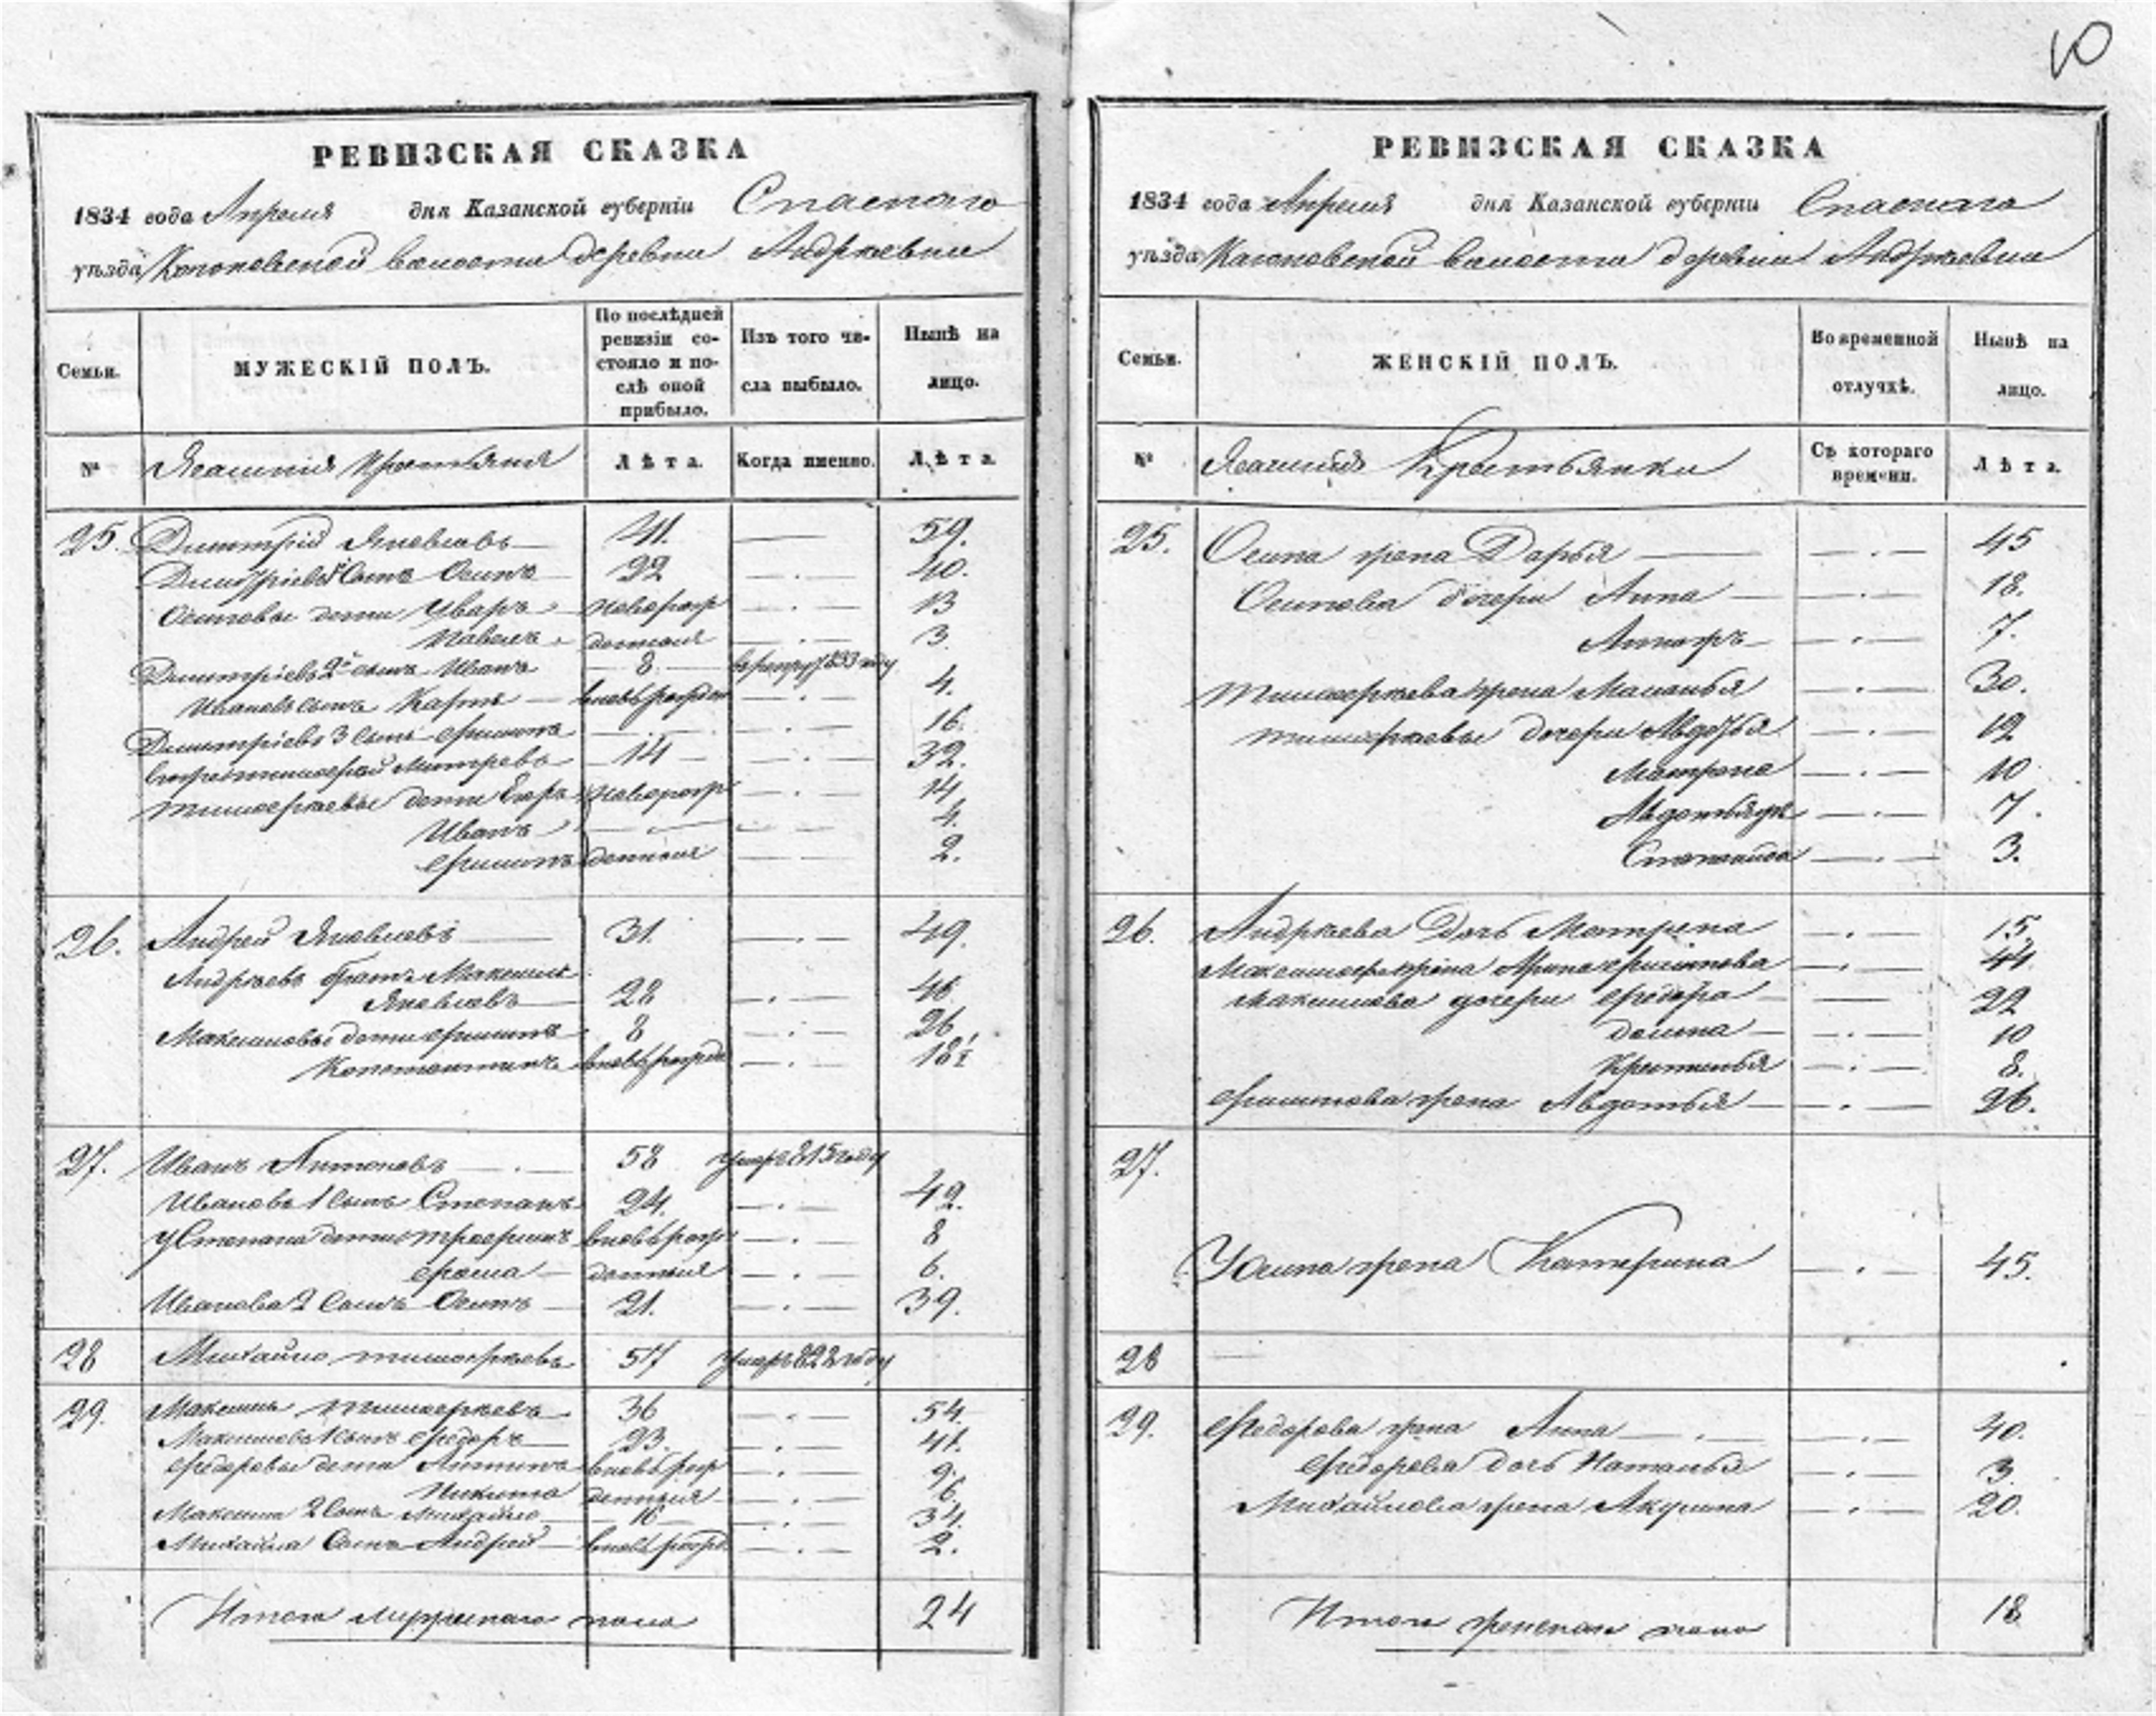 10
РЕВИЗСКАЯ СКАЗКА
1834 года Апреля дня Казанской губерніи Спаскаго
уѣзда волости деревни Андрѣевки
Семьи.
МУЖЕСКІЙ ПОЛЪ.
По послѣдней ревизіи состояло и послѣ оной прибыло.
Изъ того числа выбыло.
Нынѣ на лицо.
№
Ясашния крестьяня
Лѣта.
Когда именно.
Лѣта.
25. Димитрій Яковлевъ 41. 59.
Димитріевъ Сынъ Осипъ 22 40.
Осиповы дети Уваръ новорож 13
Павелъ денныя 3.
Димитріевъ 2й сынъ Иванъ 8 833 году
Ивановъ сынъ Карпъ вновьрожден 4.
Димитріевъ 3 сынъ Филипъ 16.
Тимофей Митревъ 14 32.
Тимофеевы дети Егоръ новорож 14
Иванъ 4.
Филипъ денныя 2.
26. Андрей Яковлевъ 31. 49.
Андреевъ братъ Максимъ
Яковлевъ 28 46
Максимовы дети Филипъ 8 26
Константинъ вновьрожде 18½
27. Иванъ Антоновъ 58 умеръ 815 году
Ивановъ 1 сынъ Степанъ 24. 42.
У Степана дети Трофимъ вновьрож 8
Фома денныя 6.
Иванова 2 сынъ Осипъ 21. 39.
28 Михайло Тимофеевъ 57 умеръ 822 году
29. Максимъ Тимофеевъ 36 54.
Максимовъ 1 сынъ Федоръ 23. 41.
Федоровы дети Антипъ вновьрож 9.
Никита денныя 6.
Максима 2 Сынъ Михайло 16 34.
Михайла Сынъ Андрей вновьрожд 2.
Итого мужескаго пола 24
РЕВИЗСКАЯ СКАЗКА
1834 года Апреля дня Казанской губерніи Спаскаго
уѣзда волости деревни Андрѣевки
Семьи.
ЖЕНСКІЙ ПОЛЪ.
Во временной отлучкѣ.
Нынѣ на лицо.
№
Ясашния Крестьянки
Съ котораго времени.
Лѣта.
25. Осипа жена Дарья 45
Осипова дочери Анна 18.
7.
Тимофеева жена Маланья 30.
Тимофеевы дочери Авдотья 12
Матрена 10
7.
Степанида 3.
26. Андреева Дочь Матрена 15
Максимова жена Арина Филипова 44
Максимова дочери Федора 22
Домна 10
8.
Филипова жена Авдотья 26.
27.
Осипа жена Катерина 45.
28
29. Федорова жена Анна 40.
Федорова дочь Наталья 3
Михайлова жена Акулина 20.
Итого женскаго пола 18